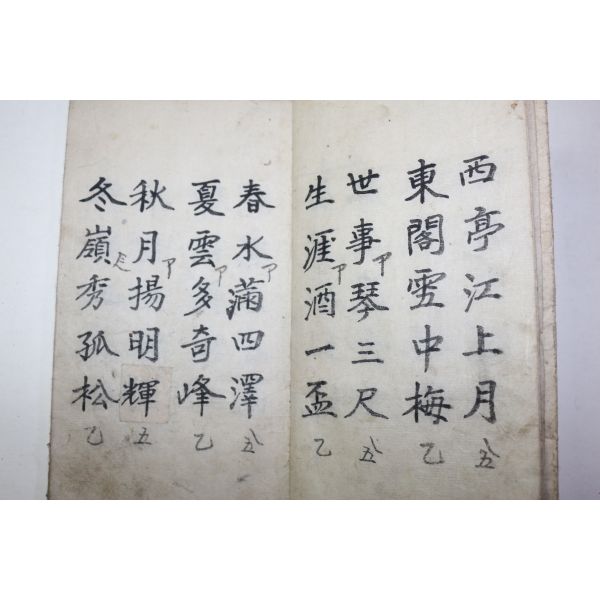 西亭江上月
東閣雪中梅
世事琴三尺
生涯酒一盃
春水滿四澤
夏雲多奇峰
秋月揚明輝
冬嶺秀孤松